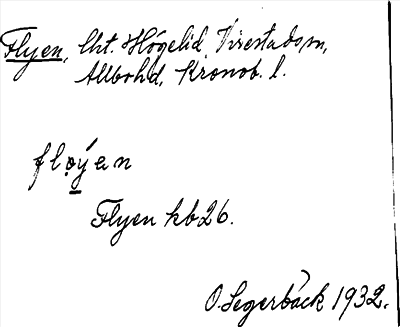 Flyen, lht. Högelid, Virestads sn,
Allboh d, Kronob. l.
flo̤ýen
Flyen kb 26.
O. Segerbäck 1932.